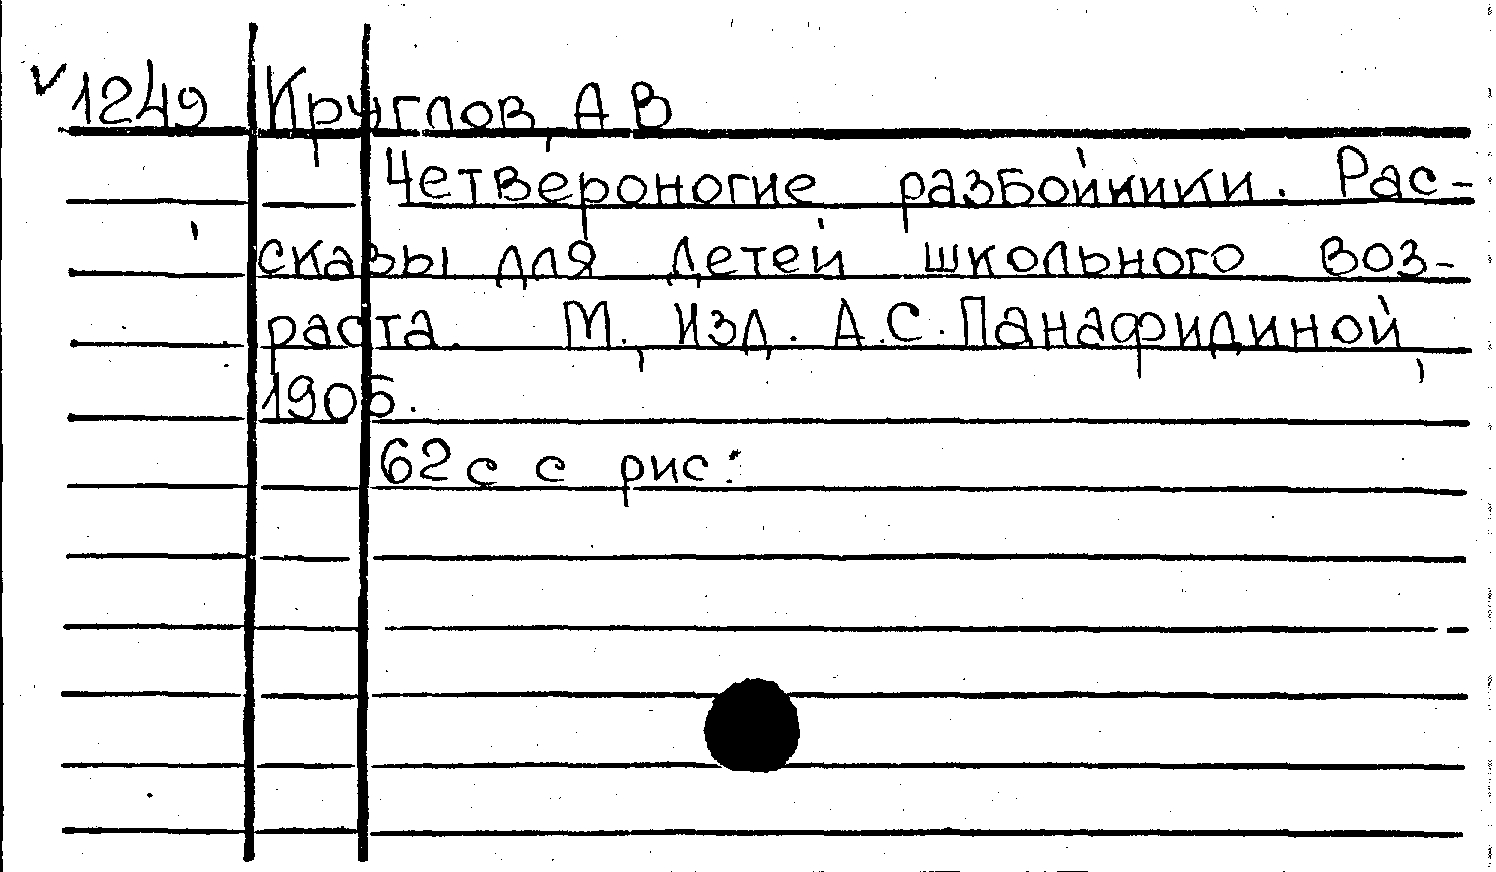 v 1249 Круглов, А В
Четвероногие разбойники. Рас-
сказы для детей школьного воз-
раста. М., Изд. А.С. Панафидиной,
1905.
62 с с рис.